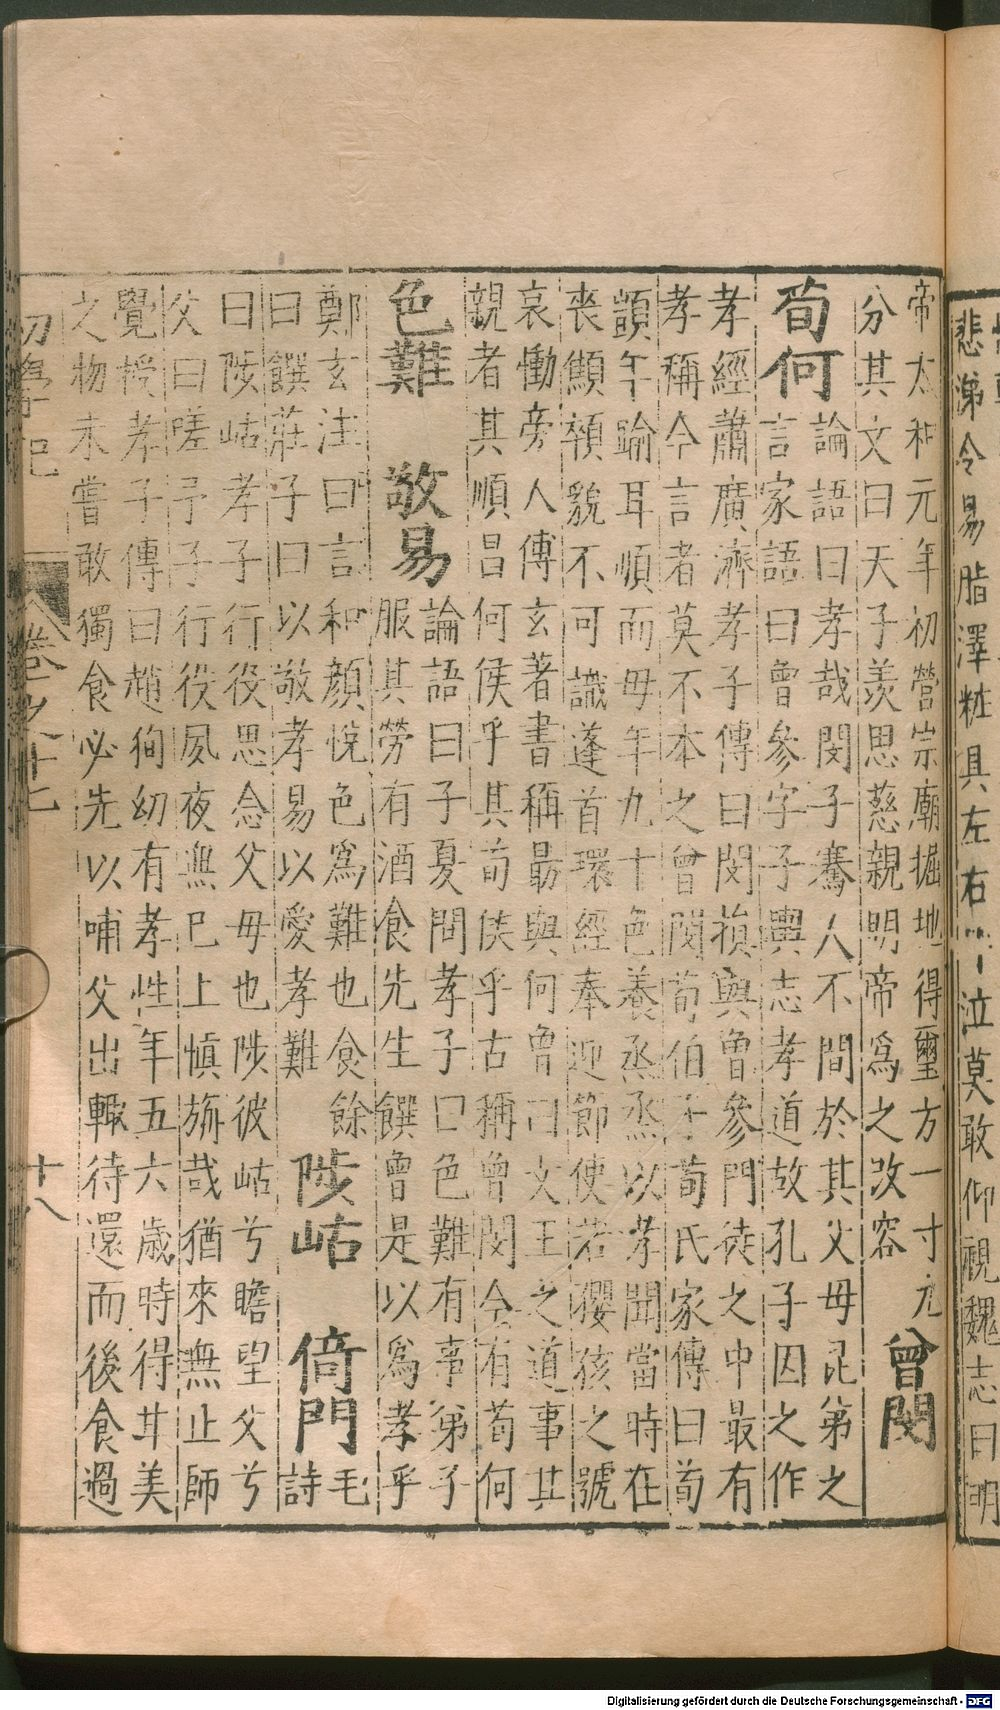 悲涕令易脂澤粧具左右
泣莫敢仰視魏志曰明
帝太和元年初營宗廟掘地得璽方一寸九
分其文曰天子羨思慈親明帝爲之改容
曾閔
荀何
論語曰孝哉閔子騫人不間於其父母昆弟之
言家語曰曾參字子輿志孝道故孔子因之作
孝經蕭廣濟孝子傳曰閔損與曾參門徒之中最有
孝稱今言者莫不本之曾閔荀伯子荀氏家傳曰荀
顗午踰耳順而母年九十色養烝烝以孝聞當時在
喪顦顇貌不可識蓬首環經奉迎節使若孾孩之號
哀慟旁人傅玄著書稱勗與何曾曰文王之道事其
親者其順昌何侯乎其荀侯乎古稱曾閔今有荀何
色難
敬易
論語曰子夏問孝子曰色難有事弟子
服其勞有酒食先生饌曾是以爲孝乎
鄭玄注曰言和顏悅色爲難也食餘
曰饌莊子曰以敬孝易以愛孝難
陟岵
倚門
毛
詩
曰陟岵孝子行役思念父母也陟彼岵兮瞻望父兮
父曰嗟予子行役夙夜無已上慎旃哉猶來無止師
覺授孝子傳曰趙狥幼有孝性年五六歲時得甘美
之物未嘗敢獨食必先以哺父出輒待還而後食過
初學記
卷之十七
十八
Digitalisierung gefördert durch die Deutsche Forschungsgemeinschaft - DFG